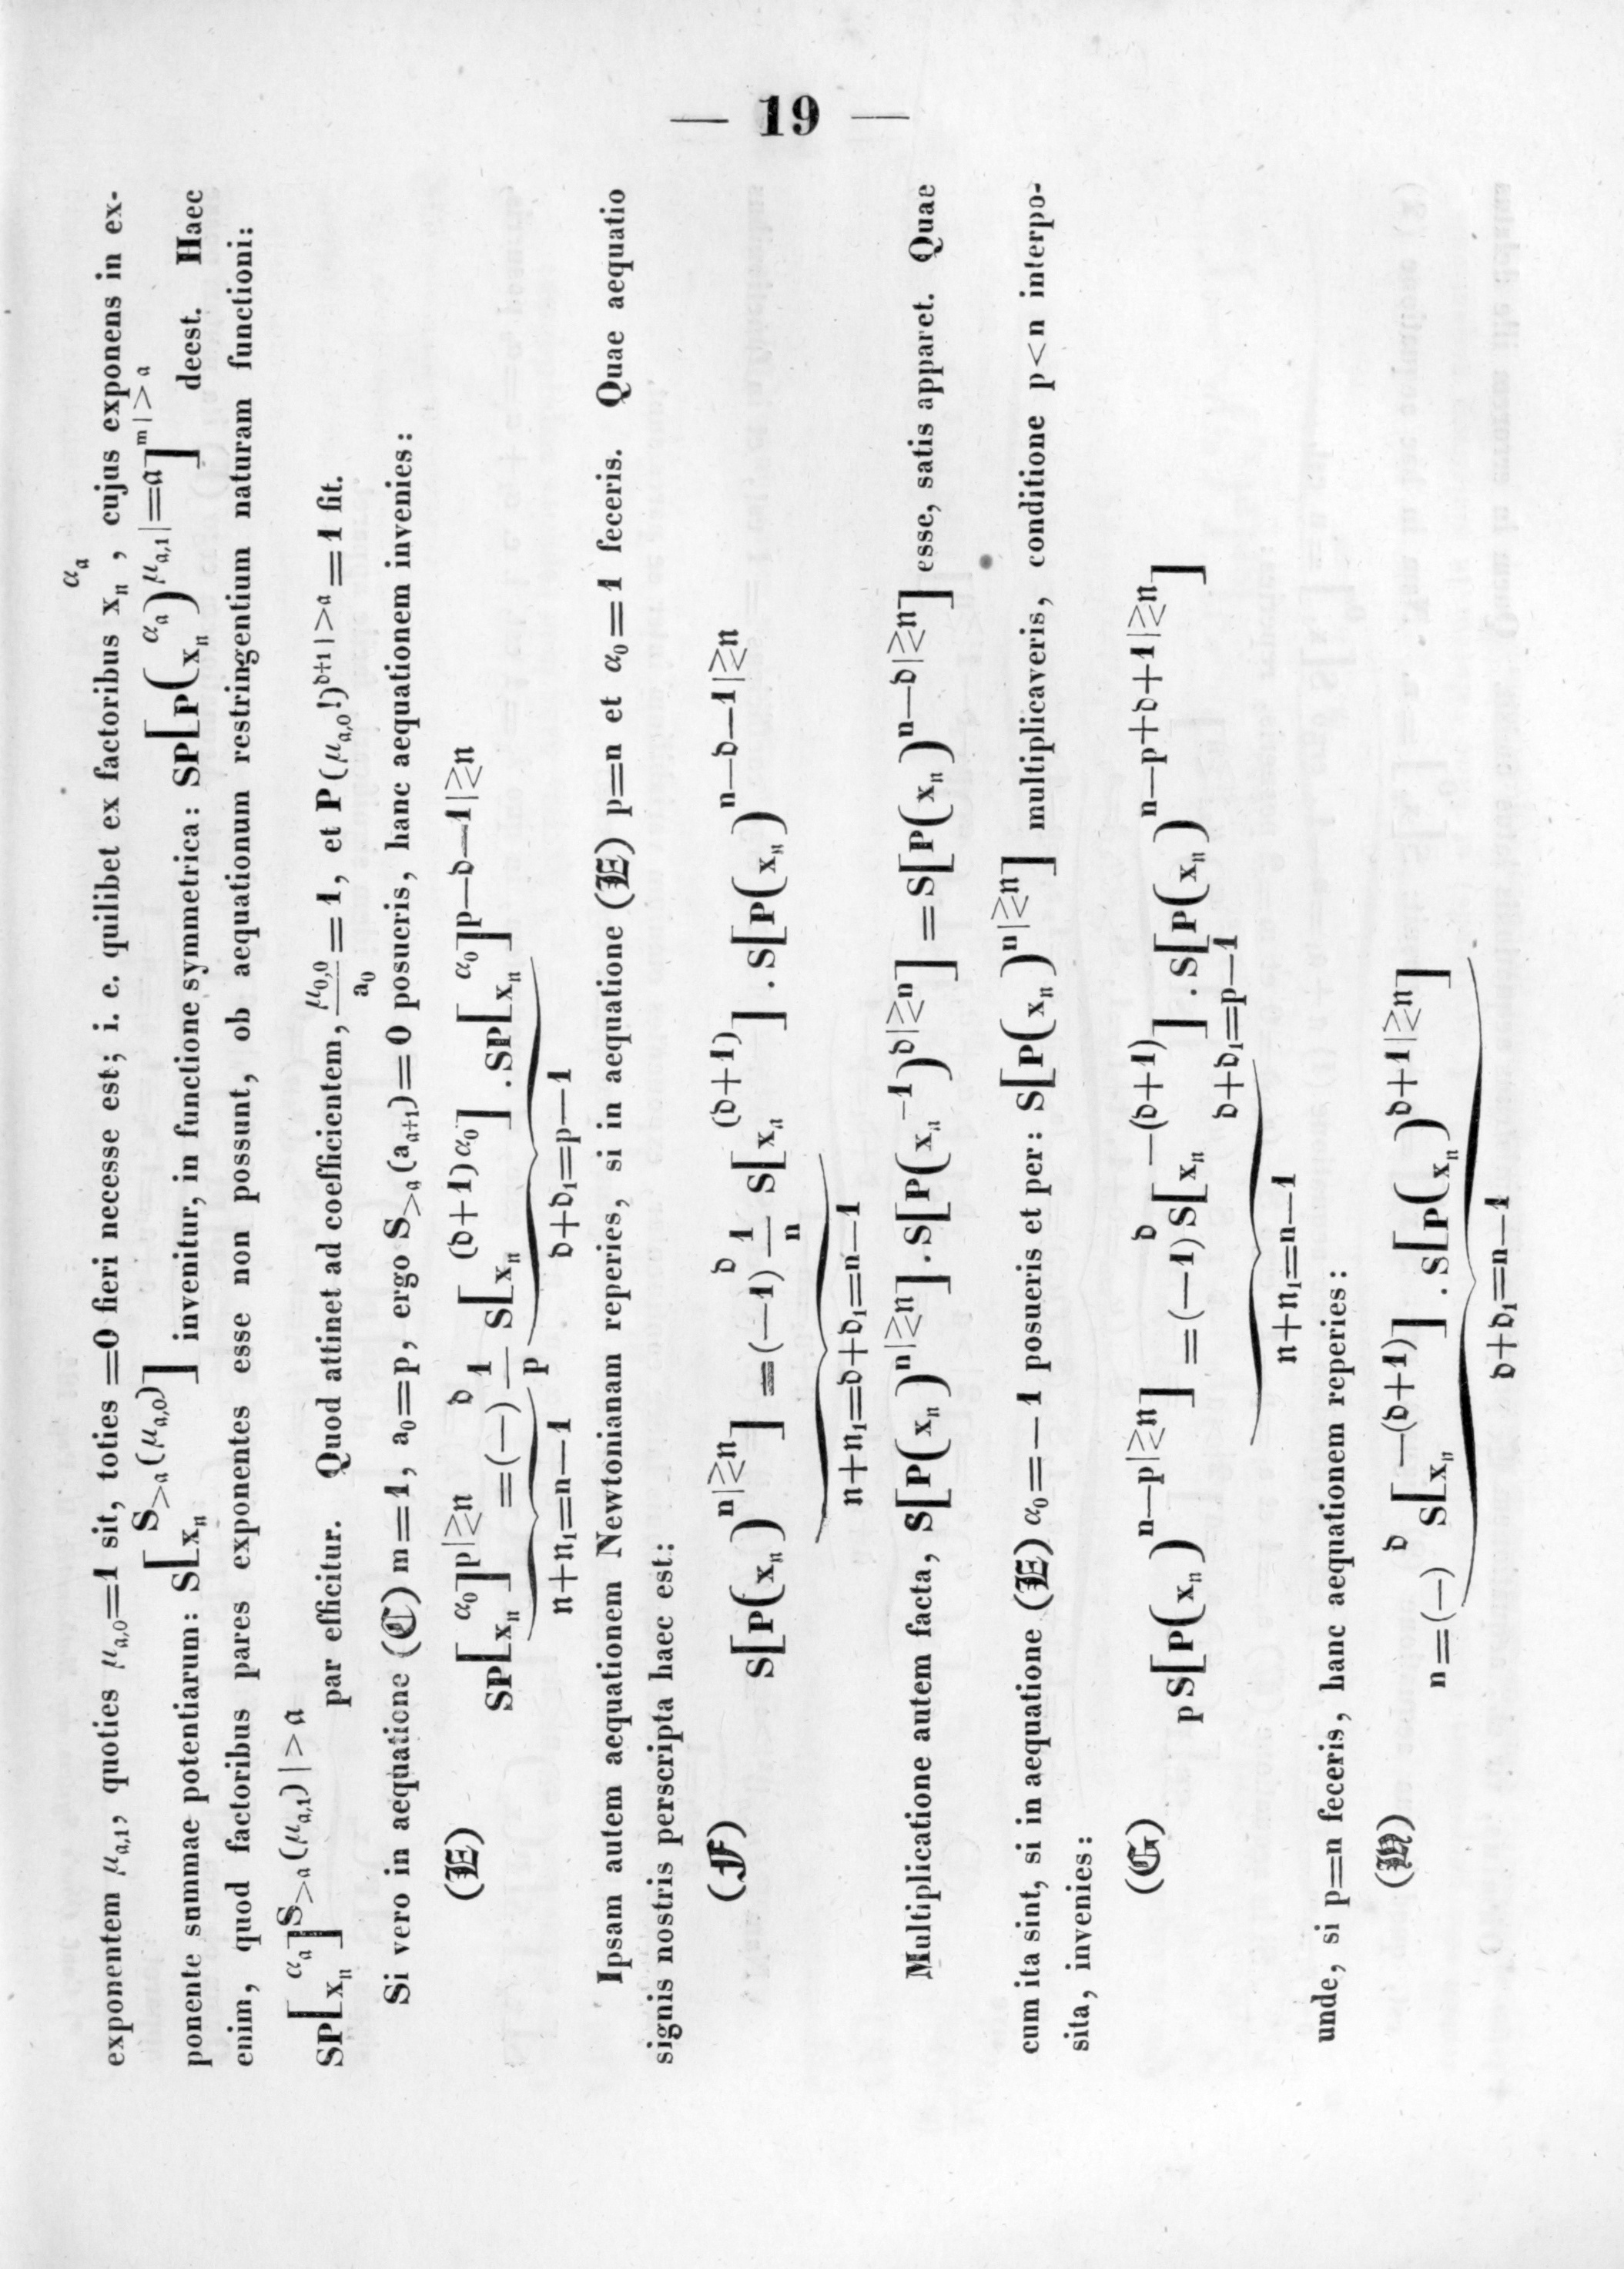 — 19 —
exponentem μₐ,₁, quoties μₐ,₀=1 sit, toties =0 fieri necesse est; i. e. quilibet ex factoribus xₙ^αₐ, cujus exponens in ex-
ponente summae potentiarum: S[xₙ^S>ₐ(μₐ,₀)] invenitur, in functione symmetrica: SP[P(xₙ^αₐ)^μₐ,₁|=a]^m|>a deest. Haec
enim, quod factoribus pares exponentes esse non possunt, ob aequationum restringentium naturam functioni:
SP[xₙ^αₐ]^S>ₐ(μₐ,₁)|>a par efficitur. Quod attinet ad coefficientem, μ₀,₀/a₀=1, et P(μₐ,₀!)^𝔡+1|>a=1 fit.
Si vero in aequatione (ℭ) m=1, a₀=p, ergo S>ₐ(aₐ₊₁)=0 posueris, hanc aequationem invenies:
(𝕰) SP[xₙ^α₀]^p|≷n =(—)^𝔡 1/p S[xₙ^(𝔡+1)α₀] . SP[xₙ^α₀]^p—𝔡—1|≷n
n+n₁=n—1 𝔡+𝔡₁=p—1
Ipsam autem aequationem Newtonianam reperies, si in aequatione (𝕰) p=n et α₀=1 feceris. Quae aequatio
signis nostris perscripta haec est:
(𝕱) S[P(xₙ)^n|≷n] =(—1)^𝔡 1/n S[xₙ^(𝔡+1)] . S[P(xₙ)^n—𝔡—1|≷n
n+n₁=𝔡+𝔡₁=n—1
Multiplicatione autem facta, S[P(xₙ)^n|≷n] . S[P(xₙ^—1)^𝔡|≷n] =S[P(xₙ)^n—𝔡|≷n] esse, satis apparet. Quae
cum ita sint, si in aequatione (𝕰) α₀=—1 posueris et per: S[P(xₙ)^n|≷n] multiplicaveris, conditione p<n interpo-
sita, invenies:
(𝕲) pS[P(xₙ)^n—p|≷n] =(—1)^𝔡 S[xₙ^—(𝔡+1)] . S[P(xₙ)^n—p+𝔡+1|≷n]
n+n₁=n—1 𝔡+𝔡₁=p—1
unde, si p=n feceris, hanc aequationem reperies:
n=(—)^𝔡 S[xₙ^—(𝔡+1)] . S[P(xₙ)^𝔡+1|≷n]
𝔡+𝔡₁=n—1